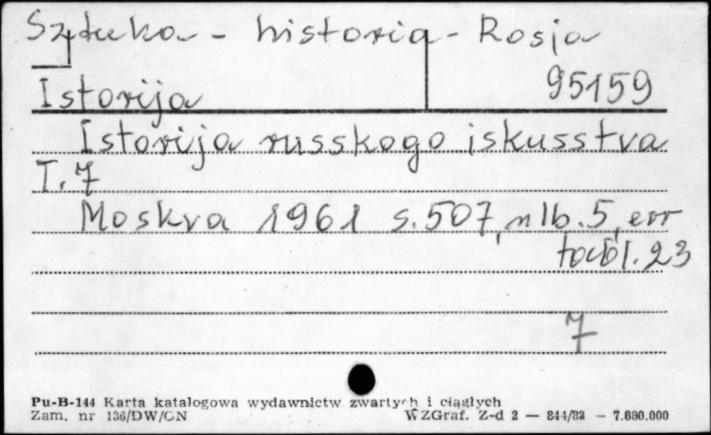 Sztuka - historia - Rosja
95159
Istorija
Istorija russkogo iskusstva
T. 7
Moskva 1961 s. 507, nlb. 5, err
tabl. 23
7
Pu-B-144 Karta katalogowa wydawnictw zwartych i ciągłych
Zam. nr 136/DW/ON WZGraf. Z-d 2 — 844/82 - 7.880.000